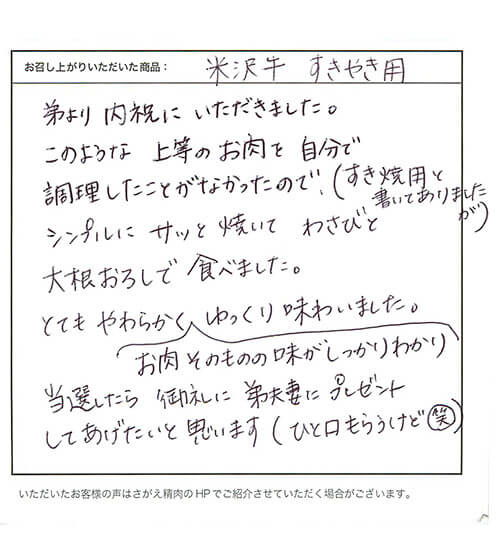 お召し上がりいただいた商品: 米沢牛 すきやき用
弟より 内祝に いただきました。
このような 上等の お肉を 自分で
調理したことがなかったので、(すき焼用と
書いてありました
が)
シンプルに サッと 焼いて わさびと
大根おろしで 食べました。
とても やわらかく ゆっくり 味わいました。
お肉そのものの味がしっかりわかり
当選したら 御礼に 弟夫妻に プレゼント
してあげたいと 思います (ひと口もらうけど 笑)
いただいたお客様の声はさがえ精肉のHPでご紹介させていただく場合がございます。